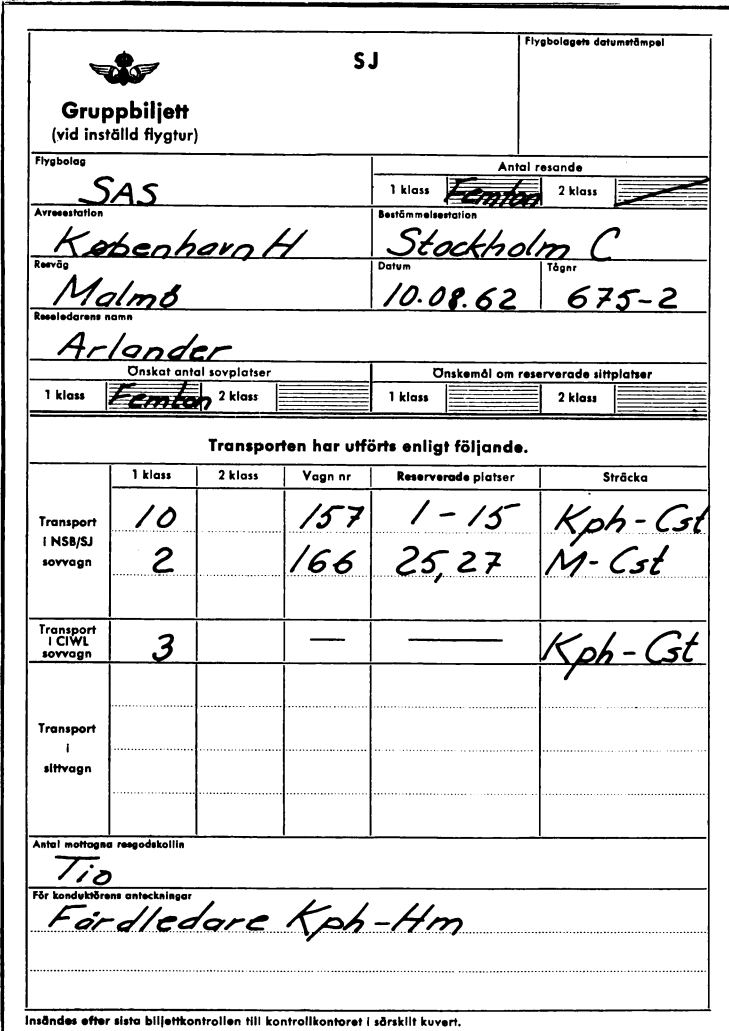 SJ
Flygbolagets datumstämpel
Gruppbiljett
(vid inställd flygtur)
Flygbolag
SAS
Antal resande
1 klass Femton 2 klass
Avresestation
København H
Bestämmelsestation
Stockholm C
Resväg
Malmö
Datum
10.08.62
Tågnr
675-2
Reseledarens namn
Arlander
Önskat antal sovplatser
1 klass Femton 2 klass
Önskemål om reserverade sittplatser
1 klass 2 klass
Transporten har utförts enligt följande.
1 klass 2 klass Vagn nr Reserverade platser Sträcka
Transport
i NSB/SJ
sovvagn
10 157 1-15 Kph-Cst
2 166 25,27 M-Cst
Transport
i CIWL
sovvagn
3 — — Kph-Cst
Transport
i
sittvagn
Antal mottagna resgodskollin
Tio
För konduktörens anteckningar
Färdledare Kph-Hm
Insändes efter sista biljettkontrollen till kontrollkontoret i särskilt kuvert.